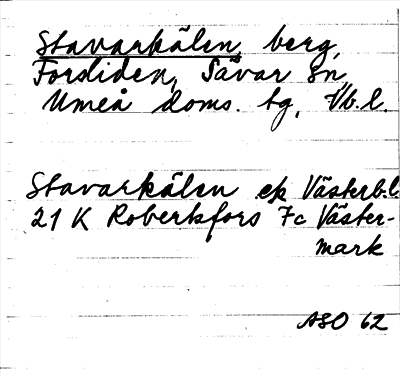 Stavarkälen, berg,
Forsliden, Sävar sn,
Umeå doms. tg, Vb.l.
Stavarkälen ek Västerb.l.
21 K Robertsfors 7c Väster-
mark
ASO 62